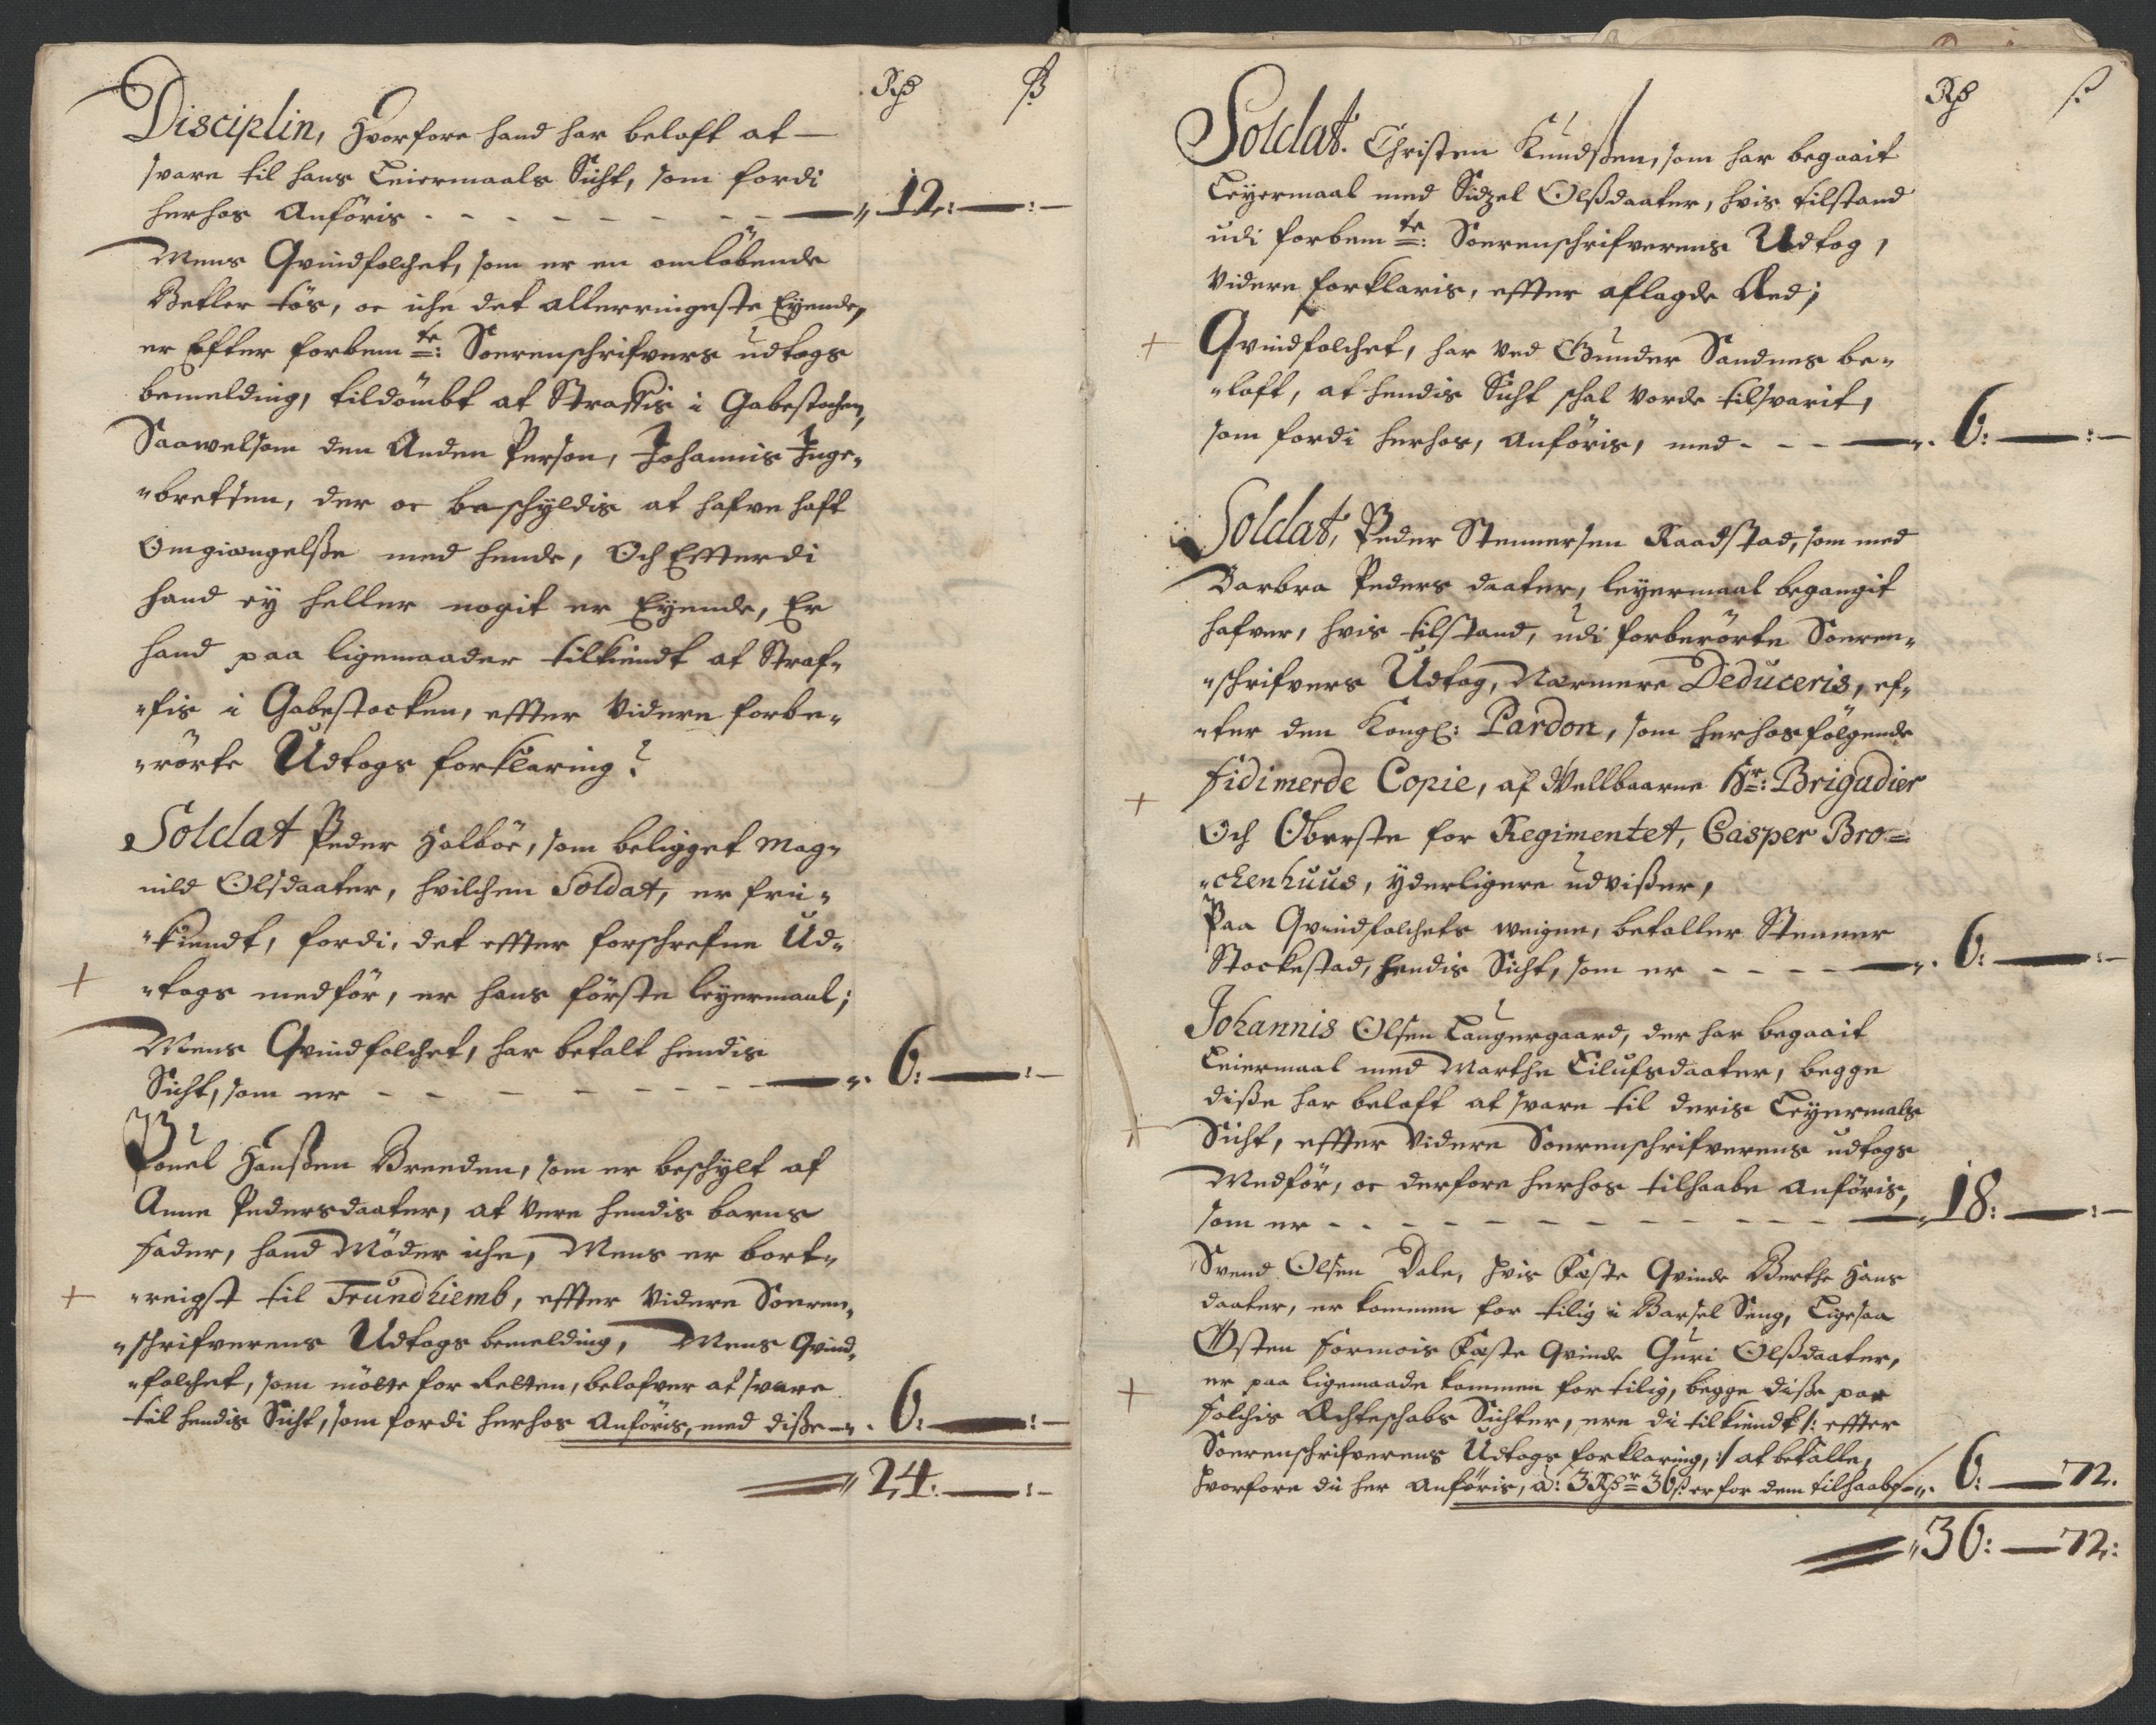 Rd ß
Disciplin, Hvorfore hand har beloft at —
svare til hans Leiermaals Sicht, som fordi
herhos Anföris - - - - - - - - — „ 12: — : —
Mens Qvindfolchet, som er en omlöbende
Betler tös, oc iche det allerringeste Eyende,
er Efter forbemte: Sorenschrifvers udtogs
bemelding, tildömbt at Straffis i Gabestochen,
Saawelsom den Anden Person, Johannis Inge„
„bretsen, der oc beschyldis at hafve haft
Omgiængelsse med hende, Och Effterdi
hand ey heller nogit er Eyende, Er
hand paa ligemaader tilkiendt at Straf„
„fis i Gabestocken, effter Videre forbe„
„rörte Udtogs forklaring;
Soldat Peder Holböe, som beligget Mag„
nild Olsdaater, hvilchen Soldat, er fri„
„kiendt, fordi, det effter forschrefne Ud„
„togs medför, er hans förste leyermaal;
Mens Qvindfolchet, har betalt hendis
Sicht, som er - - - - - - - - — „. 6: — : —
Pouel Hanssen Breeden, som er beschylt af
Anne Pedersdaater, at Vere hendis barns
Fader, hand Möder iche, Mens er bort„
„reigst til Trundhiemb, effter Videre Soeren„
„schrifverens Udtogs bemelding, Mens Qvind„
„folchet, som mötte for Retten, belofver at svare
til hendis Sicht, som fordi herhos Anföris, med disse — „. 6: — : —
„ 24: — : —
Rd ß
Soldat. Christen Knudssen, som har begaait
Leyermaal med Sidzel Olssdaater, hvis tilstand
udi forbemte: Soerenschrifverens Udtog,
Videre forklaris, effter aflagde Eed;
Qvindfolchet, har Ved Gunder Sandnes be„
„loft, at hendis Sicht schal Vorde tilsvarit,
som fordi herhos, Anföris, med - - - — „. 6: — : —
Soldat, Peder Stennersen Raadstad, som med
Barbra Peders daater, leyermaal begangit
hafver, hvis tilstand, udi forberörte Soeren„
„schrifvers Udtog, Nærmere Deduceris, ef„
„ter den Kongl: Pardon, som herhosfölgende
Fidimerde Copie, af Wellbaarne Hr: Brigadier
Och Oberste for Regimentet, Casper Bro=
„chenhuus, yderligere udvisser,
Paa Qvindfolchets weigne, betaller Stenner
Stockestad, hendis Sicht, som er - - - - — „. 6: — : —
Johannis Olsen Laugergaard, der har begaait
Leiermaal med Marthe Eilufsdaater, begge
disse har beloft at svare til deris Leyermals
Sicht, effter Videre Soerenschrifverens udtogs
Medför, oc derfore herhos tilhaabe Anföris,
som er - - - - - - - - - - — „ 18: — : —
Svend Olsen Dale, hvis Fæste Qvinde Berthe Hans
daater, er kommen for tilig i Barsel Seng, Ligesaa
Östen Formois Fæste Qvinde Guri Olssdaater,
er paa ligemaade kommen for tilig, begge disse par
Folchis Echteschabs Sichter, ere di tilkiendt /: effter
Soerenschrifverens Udtogs forklaring, :/ at betalle,
Hvorfore di her Anföris, à: 3 Rdr 36 ß er for dem tilhaabe — „. 6: — 72.
„ 36: — 72: